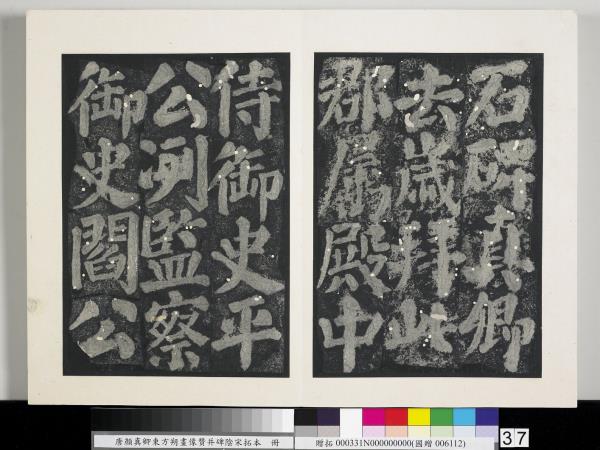 石碑真卿
去歲拜此
郡屬殿中
侍御史平
公冽監察
御史閻公
唐顏真卿東方朔畫像贊并碑陰宋拓本 冊
贈拓 000331N000000000(國贈 006112)
37